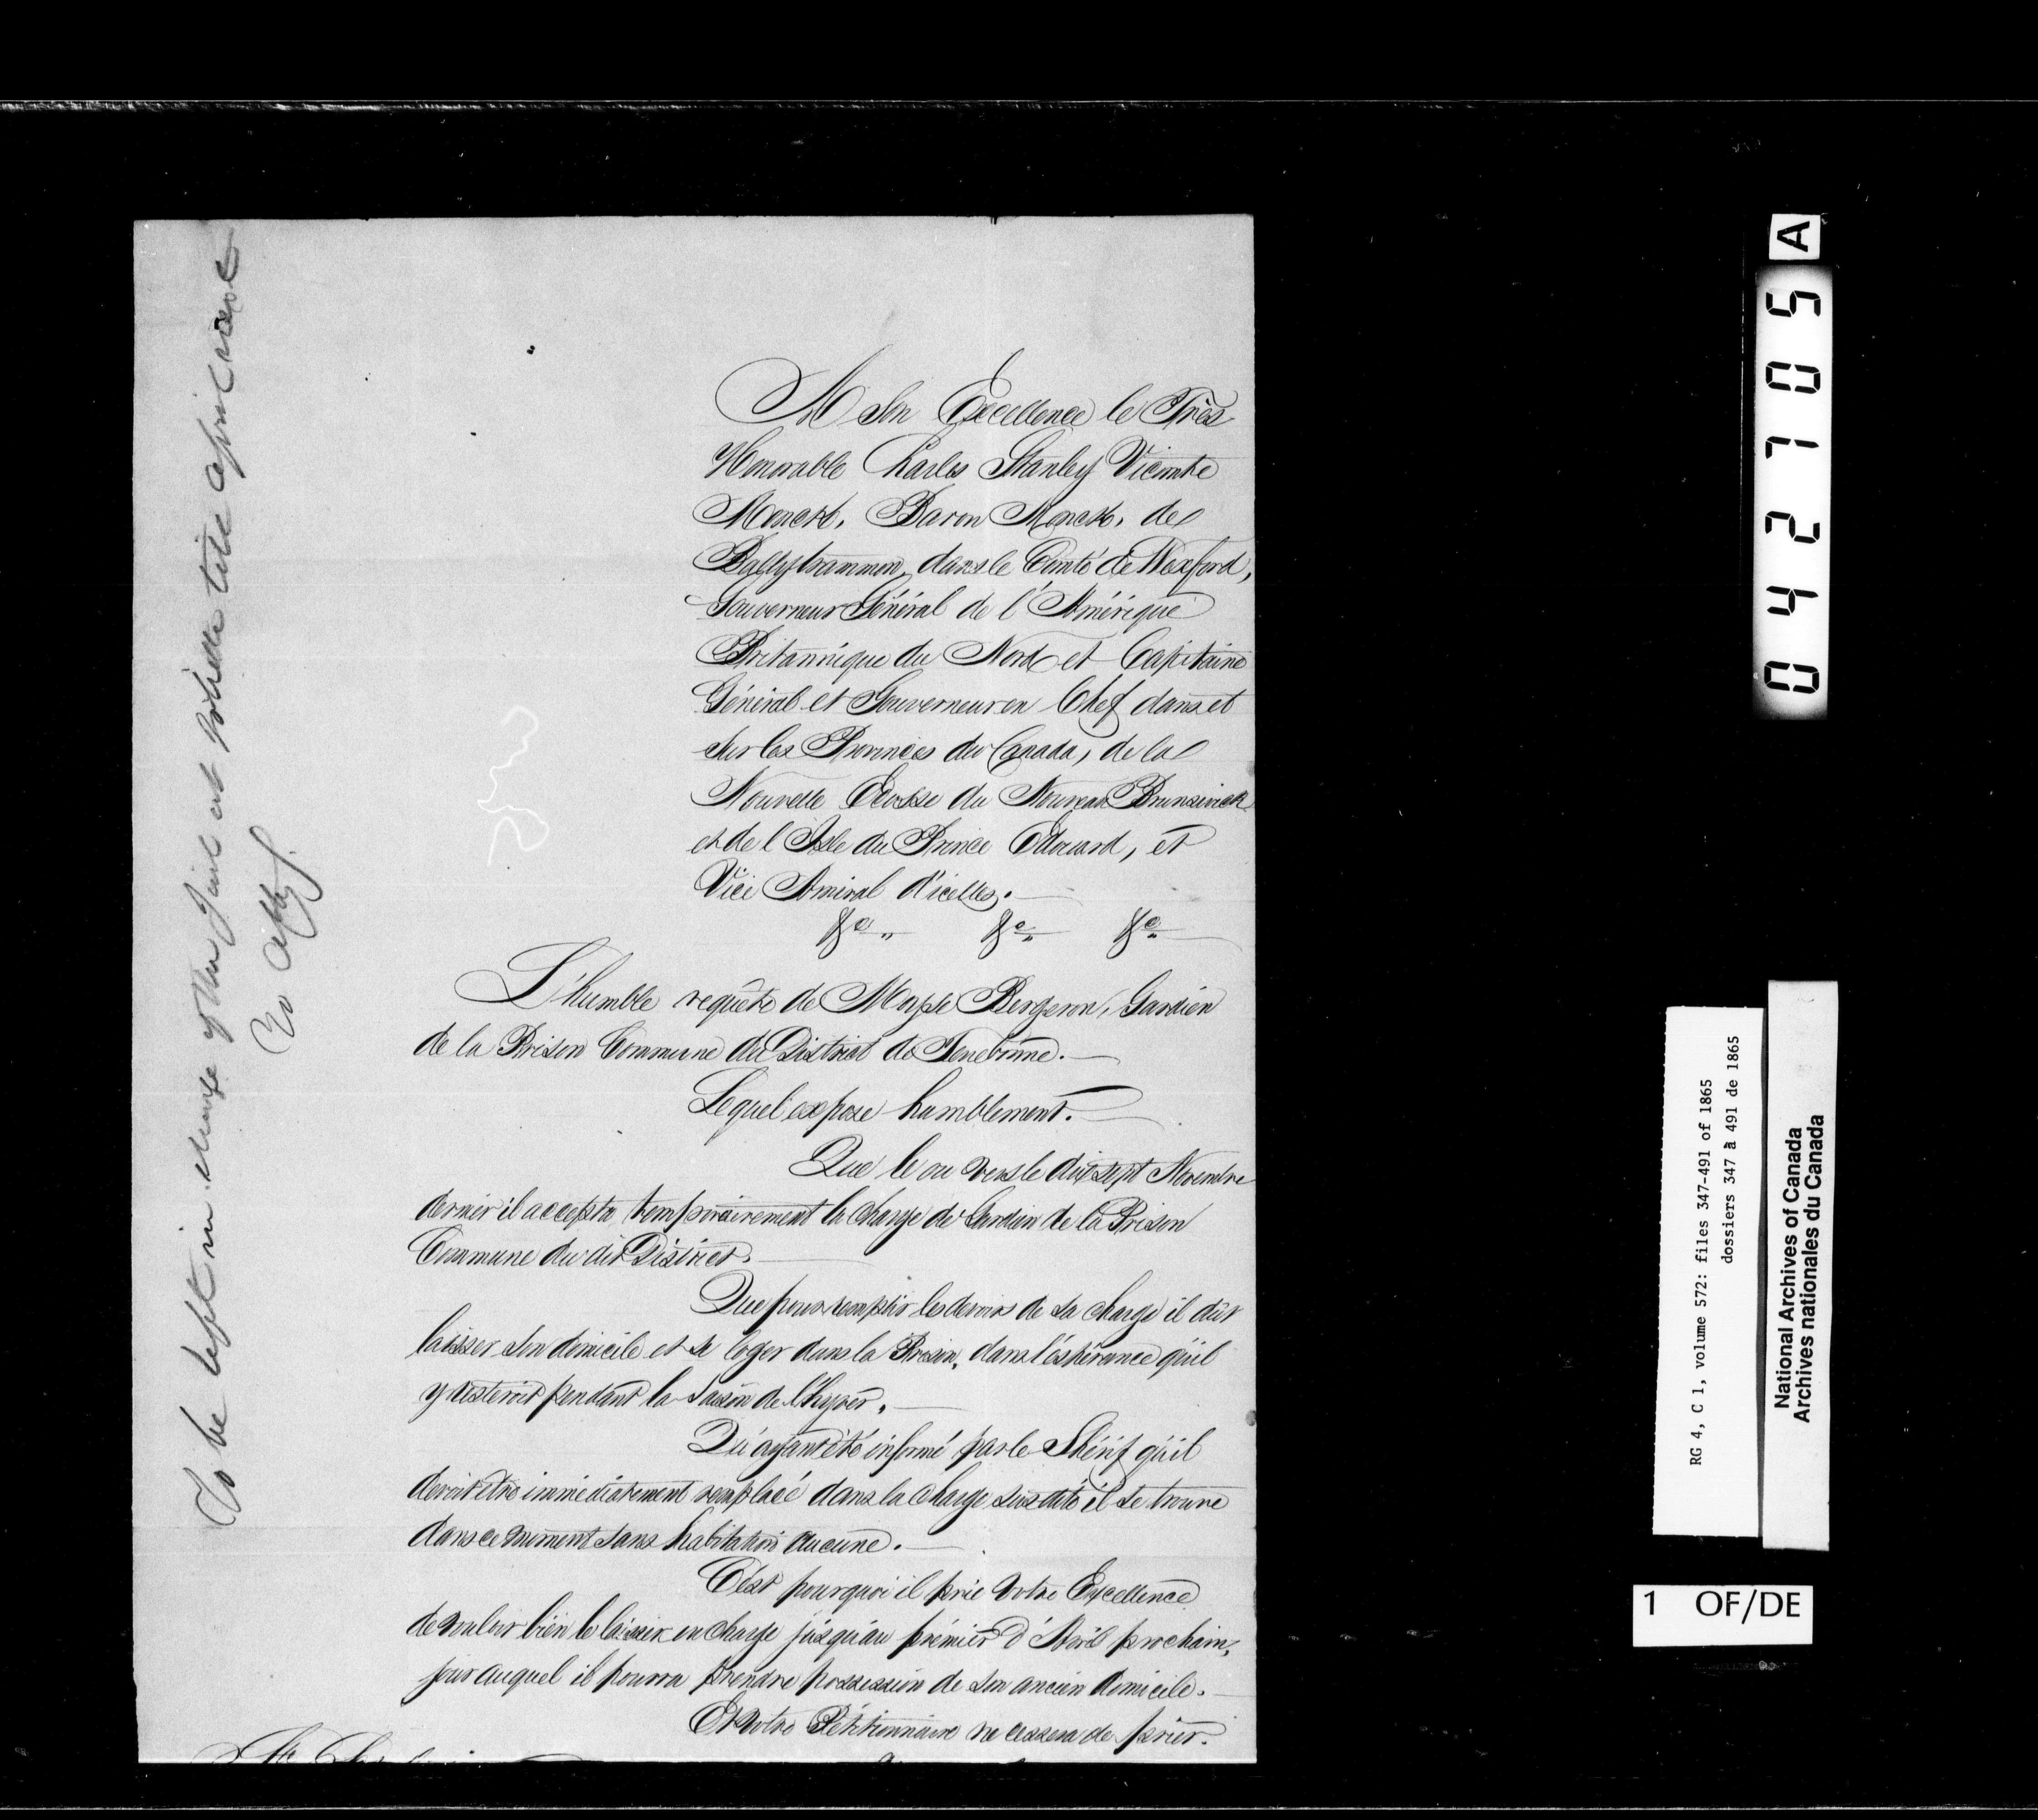 A Son Excellence le Très
Honorable Charles Stanley Vicomte
Monck, Baron Monck, de
Ballytrammon, dans le Comté de Wexford,
Gouverneur Général de l'Amérique
Britannique du Nord et Capitaine
Général et Gouverneur en Chef dans et
sur les Provinces du Canada, de la
Nouvelle Ecosse du Nouveau Brunswick
et de l'Isle du Prince Edouard, et
Vice Amiral d'icelles.
&c &c &c
L'humble requête de Moyse Bergeron, Gardien
de la Prison Commune du District de Terrebonne.
Lequel expose humblement.
Que le ou vers le dix sept Novembre
dernier il accepta temporairement la charge de Gardien de la Prison
Commune du dit District.
Que pour remplir les devoirs de sa charge il dût
laisser son domicile et se loger dans la Prison, dans l'espérance qu'il
y resteroit pendant la saison de l'hyver.
Qu'ayant été informé par le Shérif qu'il
devoit être immédiatement remplacé dans la charge susdite il se trouve
dans ce moment sans habitation aucune.
C'est pourquoi il prie Votre Excellence
de vouloir bien le laisser en charge jusqu'au prémier d'Avril prochain,
jour auquel il pourra prendre possession de son ancien domicile.
Et Votre Pétitionnaire ne cessera de prier.
To be kept in charge of the Jail at Ste Scholastique till April next
042705 A
RG 4, C 1, volume 572: files 347-491 of 1865
dossiers 347 à 491 de 1865
National Archives of Canada
Archives nationales du Canada
1 OF/DE